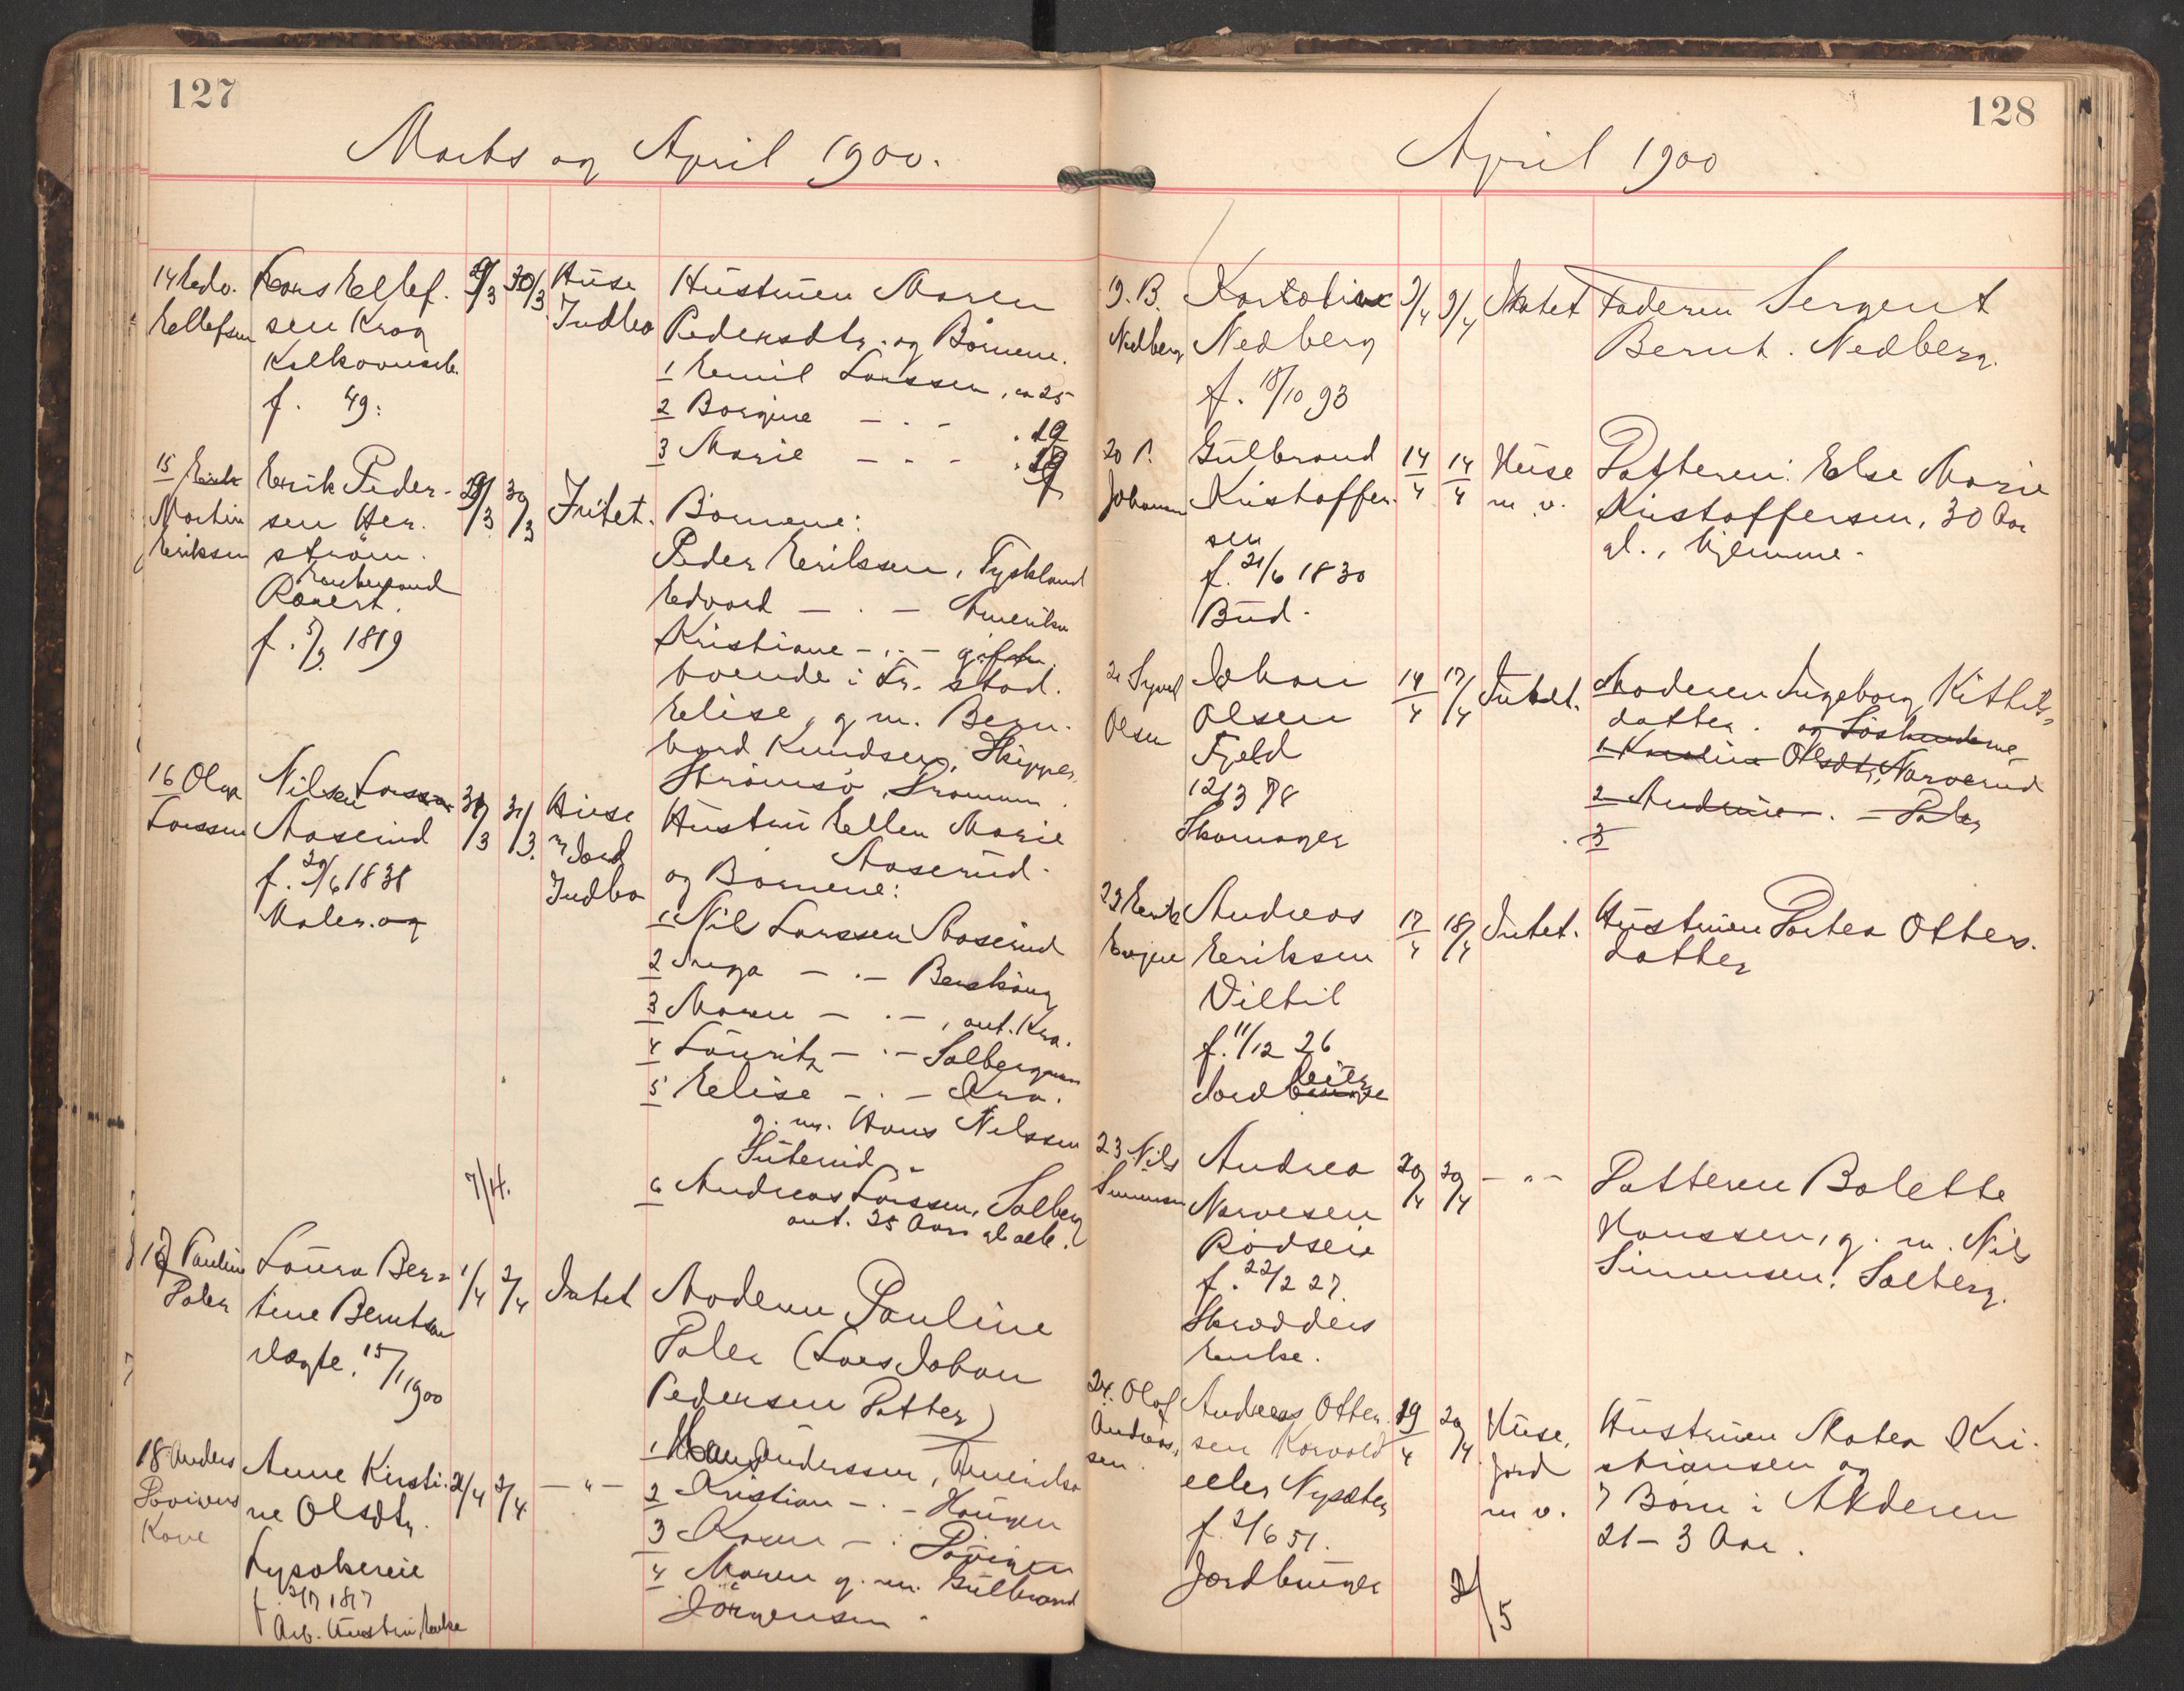 127
Marts og April 1900.
14 Edv. Ellefsen
Hans Ellef-
sen Krog
f. 49:
29/3 30/3
Huse
Indbo
Hustruen Maren
Pedersdtr. og Börnene.
1 Emil Larssen, ca 25
2 Borgine — . — . 19
3 Marie — . —
15 Martin Eriksen
Erik Peder-
sen Her-
ström.
Enkemand
f. 5/3 1819
29/3 30/3
Intet.
Börnene:
Peder Erikssen, Tyskland
Edvard — . — Amerika
Kristiane — . — gift
boende i Fr. stad.
Elise, g. m. Bern-
hard Knudsen, Skipper
Strömsö, Drammen.
16 Olga Larssen
Nilsen Larssen
Aaserud
f. 29/6 1838
Maler. og
31/3 31/3.
Huse
Jord
Indbo
Hustru Ellen Marie
Aaserud.
og Börnene:
1 Nil Larssen Aaserud
2 Inga — . — Berskoug
3 Maren — . — , ant. Kra.
4 Lauritz — . — Solbergmoen
5 Elise — . — Kra.
g. m. Hans Nilssen
Suterud
6 Andreas Larssen, Solberg
ant. 25 Aar alle.
7/4.
17 Pauline Paler
Laura Ber-
tine Berntsen
15/1 1900
1/4 2/4
Intet
Moderen Pauline
Paler (Lars Johan
Pedersen Datter)
18 Anders Kone
Anne Kirsti-
ne Olsdtr.
Lysakereie
Arb. Hustru, Enke
2/4 2/4
— " —
1 Hans Anderssen, Amerika
2 Kristian — . — Haugen
3 Karen — .
4 Maren g. m. Gulbrand
Jörgensen.
128
April 1900
19. B. Nedberg
Nedberg
f. 18/10 93
9/4 9/4
Intet
Faderen Sergent
Bernt. Nedberg.
20 P. Johansen
Gulbrand
Kristoffer-
sen
f. 21/6 1830
Bud.
14/4 14/4
Huse
m. v.
Datteren: Else Marie
Kristoffersen, 30 Aar
gl., hjemme.
21 Syver Olsen
Johan
Olsen
Fjeld
12/3 78
Skomager
14/4 17/4
Intet.
Moderen Ingeborg Kittils-
datter. og Söskendene
1 Karoline Olsdtr, Narverud
2 Andrine — . — Paler
3
22
Andreas
Eriksen
Viltil
f. 11/12 26
Jordbruger
17/4 18/4
Intet.
Hustruen Dortea Otters-
datter
23 Nils Simensen
Andrea
Narvesen
Rödseie
f. 22/2 27.
Skrædders
Enke.
20/4 20/4
— " —
Datteren Bolette
Hanssen, g. m. Nils
Simensen, Solberg.
24. Olaf Andreas-
sen.
Andreas Otter-
sen Korvald
eller Nysæter
f. 2/6 51.
Jordbruger
19/4 20/4.
Huse,
Jord
m. v.
Hustruen Matea Kri-
stiansen og
7 Börn i Alderen
21 — 3 Aar.
2/5